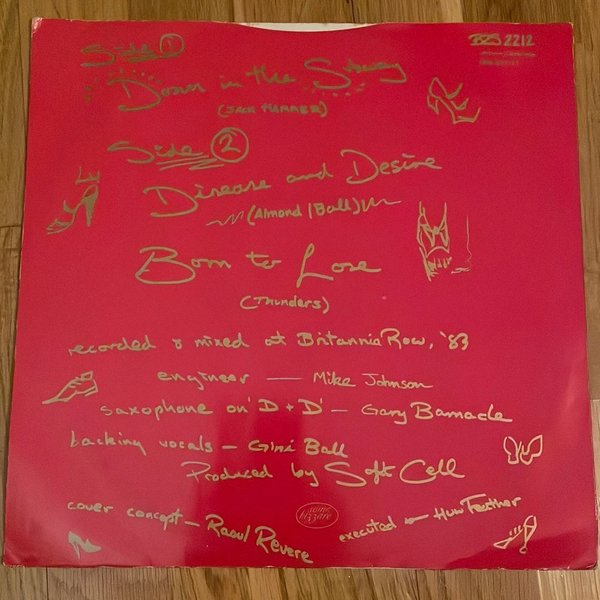 Side 1
BZS 2212
Down in the Subway
(JACK HAMMER)
Side 2
Disease and Desire
(Almond / Ball)
Born to Lose
(Thunders)
recorded & mixed at Britannia Row, '83
engineer — Mike Johnson
saxophone on 'D + D' — Gary Barnacle
backing vocals — Gini Ball
Produced by Soft Cell
some bizzare
cover concept — Raoul Revere
executed — Huw Feather